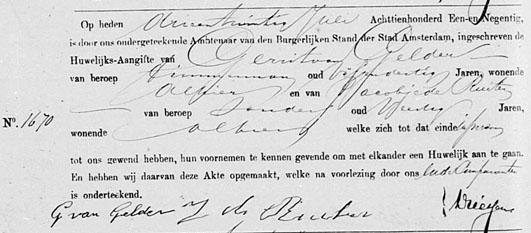 Op heden drieentwintig Juli Achttienhonderd Een-en Negentig,
is door ons ondergeteekende Ambtenaar van den Burgerlijken Stand der Stad Amsterdam, ingeschreven de
Huwelijks-Aangifte van Gerrit van Gelder
van beroep Timmerman oud Jaren, wonende
alhier en van Jacoba de Ruiter
van beroep zonder oud Jaren,
No. 1670
wonende alhier welke zich tot dat einde in persoon
tot ons gewend hebben, hun voornemen te kennen gevende om met elkander een Huwelijk aan te gaan.
En hebben wij daarvan deze Akte opgemaakt, welke na voorlezing door ons en de Comparanten
is onderteekend.
G van Gelder J de Ruiter